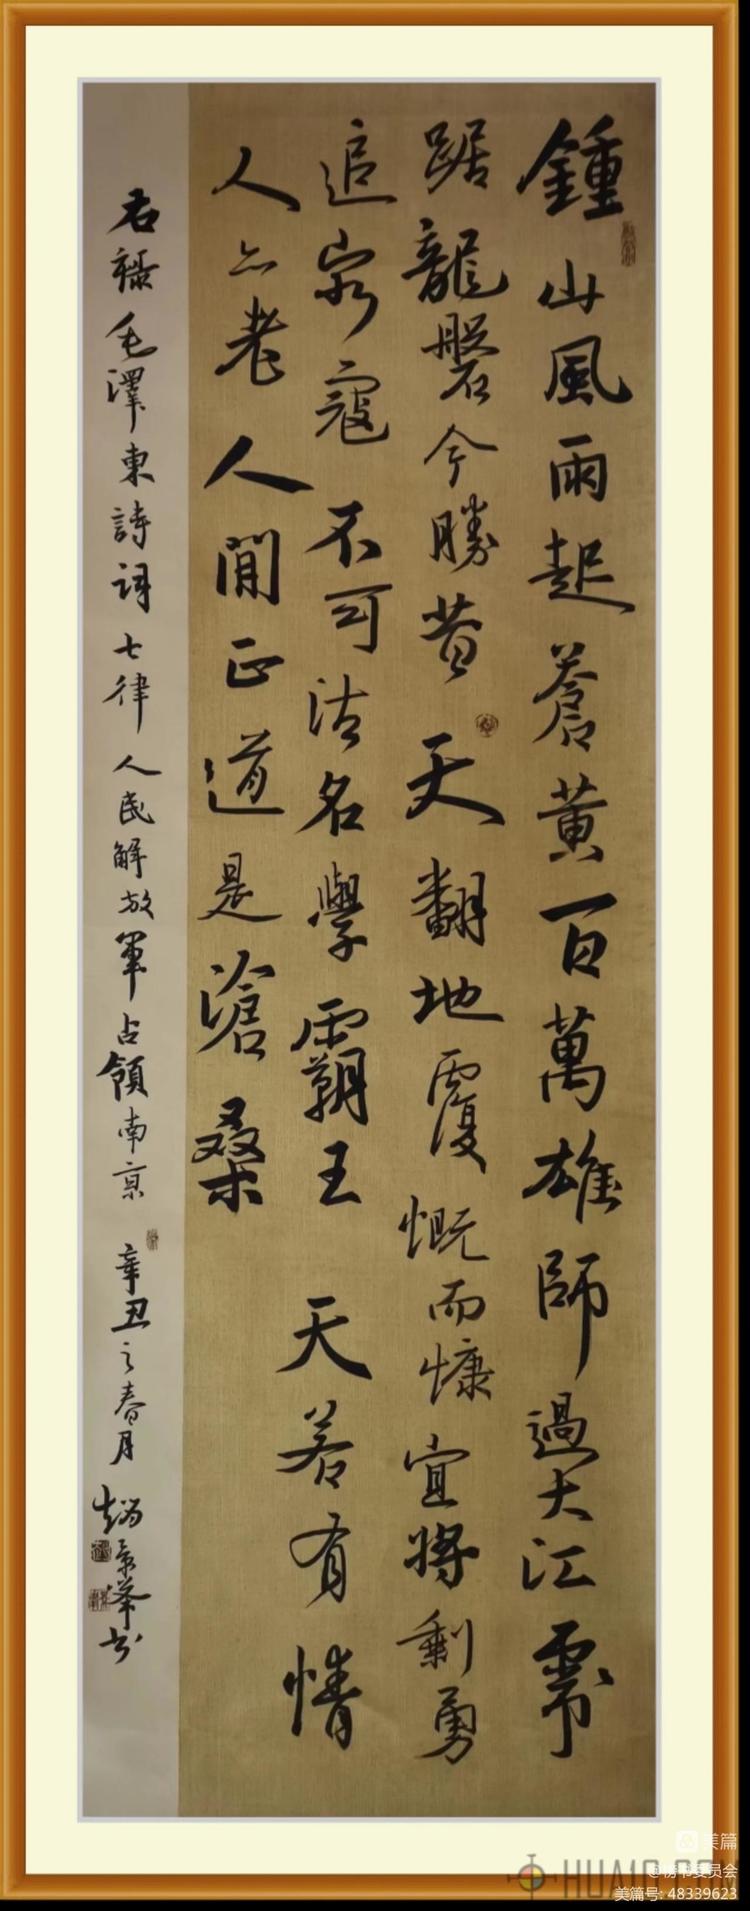 鍾山風雨起蒼黃百萬雄師過大江虎
踞龍磐今勝昔天翻地覆慨而慷宜將剩勇
追窮寇不可沽名學霸王天若有情
人亦老人間正道是滄桑
右録毛澤東詩詞七律人民解放軍占領南京辛丑之春月趙景峯书
美篇
HUA10.COM
美篇号: 48339623